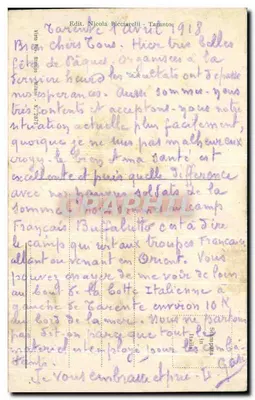 Edit. Nicola Ricciarelli - Taranto
Tarente 1 avril 1918
Bien chers Tous. Hier très belles
fêtes de Pâques organisées à la
dernière heure les résultats ont dépassé
nos espérances. Aussi sommes-nous
très contents et acceptons-nous notre
situation actuelle plus facilement,
quoique je ne suis pas malheureux
croyez-le bien et ma santé est
excellente et puis quelle différence
avec nos pauvres soldats de la
Somme camp
Français Buffaluto c'est à dire
le camp qui sert aux troupes Françaises
allant ou venant en Orient. Vous
pouvez essayer de me voir de loin
au bout de la botte Italienne à
gauche de Tarente environ 10 K
au bord de la mer. Nous ne partons
pas dit-on parce que tout le
matériel est employé pour les
Je vous embrasse